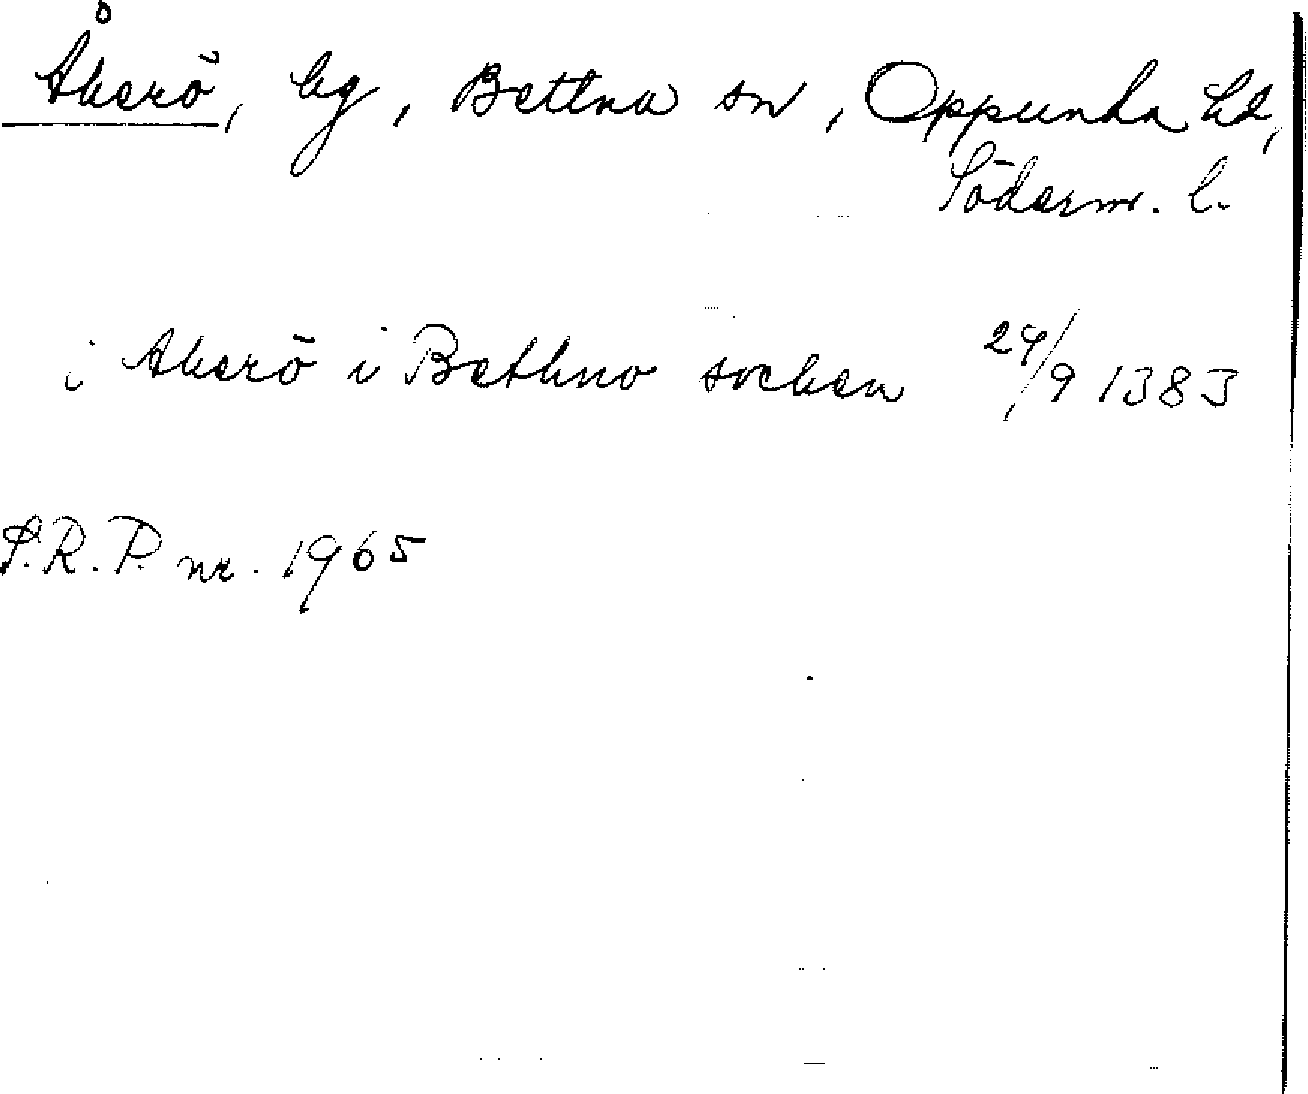 Åkerö, hg, Bettna sn, Oppunda hd,
Söderm. l.
i Akerö i Bethno socken 24/9 1383
S.R.P. nr. 1965